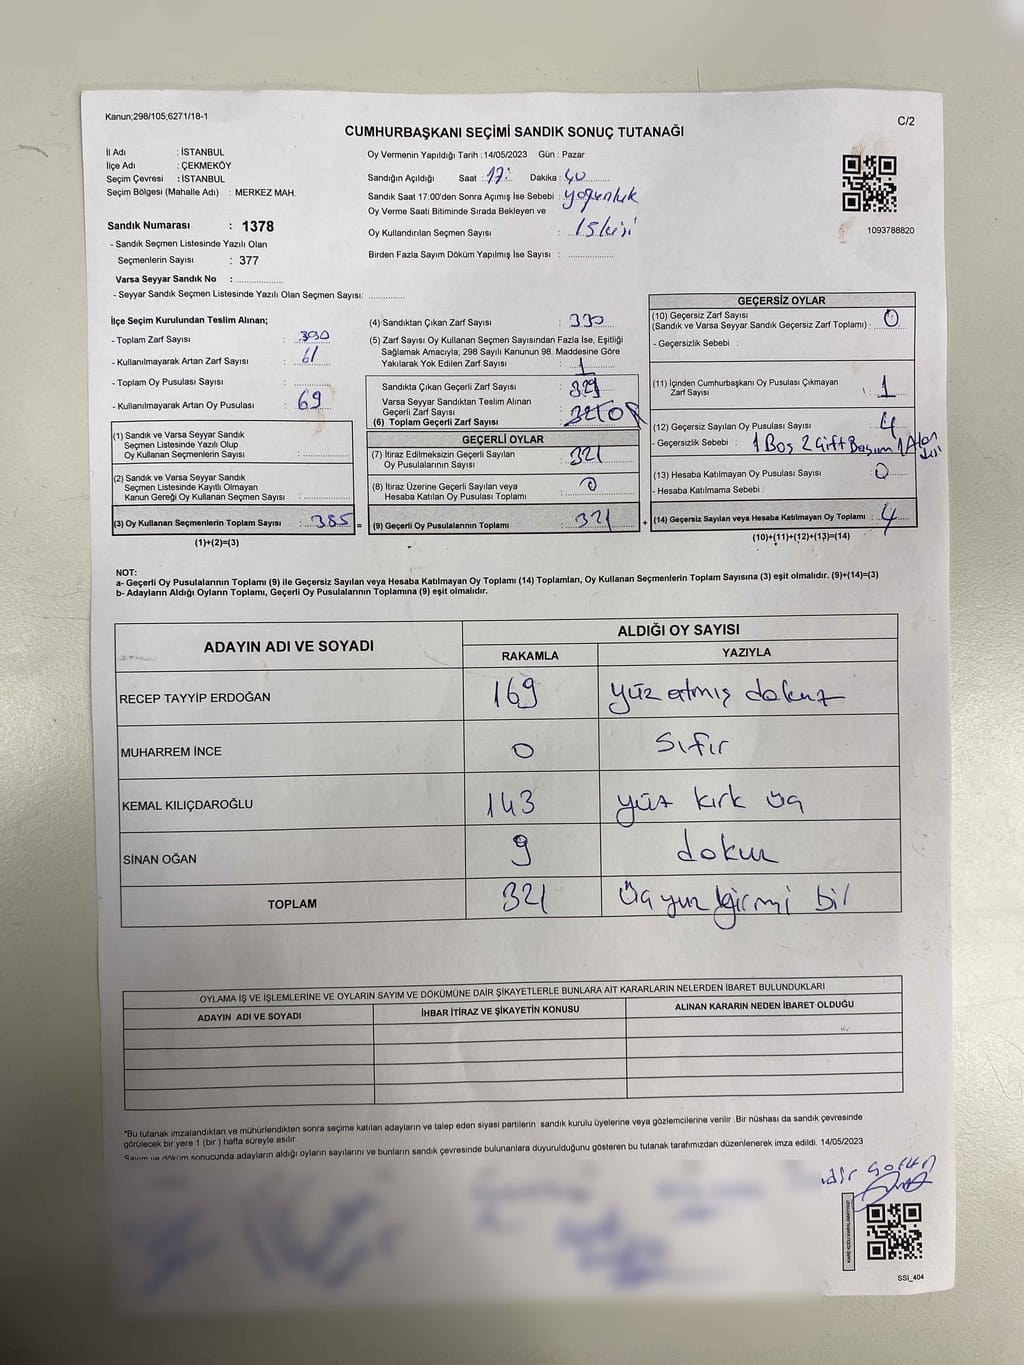 Kanun;298/105;6271/18-1
C/2
CUMHURBAŞKANI SEÇİMİ SANDIK SONUÇ TUTANAĞI
İl Adı : İSTANBUL
İlçe Adı : ÇEKMEKÖY
Seçim Çevresi : İSTANBUL
Seçim Bölgesi (Mahalle Adı) : MERKEZ MAH.
Sandık Numarası : 1378
- Sandık Seçmen Listesinde Yazılı Olan
Seçmenlerin Sayısı : 377
Varsa Seyyar Sandık No :
- Seyyar Sandık Seçmen Listesinde Yazılı Olan Seçmen Sayısı:
Oy Vermenin Yapıldığı Tarih : 14/05/2023 Gün : Pazar
Sandığın Açıldığı Saat : 17: Dakika : 40
Sandık Saat 17:00'den Sonra Açımış İse Sebebi : yoğunluk
Oy Verme Saati Bitiminde Sırada Bekleyen ve
Oy Kullandırılan Seçmen Sayısı : 15 kişi
Birden Fazla Sayım Döküm Yapılmış İse Sayısı :
1093788820
İlçe Seçim Kurulundan Teslim Alınan;
- Toplam Zarf Sayısı : 390
- Kullanılmayarak Artan Zarf Sayısı : 61
- Toplam Oy Pusulası Sayısı :
- Kullanılmayarak Artan Oy Pusulası : 69
(1) Sandık ve Varsa Seyyar Sandık
Seçmen Listesinde Yazılı Olup
Oy Kullanan Seçmenlerin Sayısı :
(2) Sandık ve Varsa Seyyar Sandık
Seçmen Listesinde Kayıtlı Olmayan
Kanun Gereği Oy Kullanan Seçmen Sayısı :
(3) Oy Kullanan Seçmenlerin Toplam Sayısı : 385 =
(1)+(2)=(3)
(4) Sandıktan Çıkan Zarf Sayısı : 330
(5) Zarf Sayısı Oy Kullanan Seçmen Sayısından Fazla İse, Eşitliği
Sağlamak Amacıyla; 298 Sayılı Kanunun 98. Maddesine Göre
Yakılarak Yok Edilen Zarf Sayısı : 1
Sandıkta Çıkan Geçerli Zarf Sayısı : 329
Varsa Seyyar Sandıktan Teslim Alınan
Geçerli Zarf Sayısı
(6) Toplam Geçerli Zarf Sayısı :
GEÇERLİ OYLAR
(7) İtiraz Edilmeksizin Geçerli Sayılan
Oy Pusulalarının Sayısı : 321
(8) İtiraz Üzerine Geçerli Sayılan veya
Hesaba Katılan Oy Pusulası Toplamı : 0
(9) Geçerli Oy Pusulalarının Toplamı : 321 +
GEÇERSİZ OYLAR
(10) Geçersiz Zarf Sayısı
(Sandık ve Varsa Seyyar Sandık Geçersiz Zarf Toplamı) : 0
- Geçersizlik Sebebi :
(11) İçinden Cumhurbaşkanı Oy Pusulası Çıkmayan
Zarf Sayısı : 1
(12) Geçersiz Sayılan Oy Pusulası Sayısı : 4
- Geçersizlik Sebebi : 1 Boş 2 Çift Basım 1 Alan
(13) Hesaba Katılmayan Oy Pusulası Sayısı : 0
- Hesaba Katılmama Sebebi :
(14) Geçersiz Sayılan veya Hesaba Katılmayan Oy Toplamı : 4
(10)+(11)+(12)+(13)=(14)
NOT:
a- Geçerli Oy Pusulalarının Toplamı (9) ile Geçersiz Sayılan veya Hesaba Katılmayan Oy Toplamı (14) Toplamları, Oy Kullanan Seçmenlerin Toplam Sayısına (3) eşit olmalıdır. (9)+(14)=(3)
b- Adayların Aldığı Oyların Toplamı, Geçerli Oy Pusulalarının Toplamına (9) eşit olmalıdır.
ADAYIN ADI VE SOYADI
ALDIĞI OY SAYISI
RAKAMLA YAZIYLA
RECEP TAYYİP ERDOĞAN 169 yüz atmış dokuz
MUHARREM İNCE 0 Sıfır
KEMAL KILIÇDAROĞLU 143 yüz kırk üç
SİNAN OĞAN 9 dokuz
TOPLAM 321 Üç yüz yirmi bir
OYLAMA İŞ VE İŞLEMLERİNE VE OYLARIN SAYIM VE DÖKÜMÜNE DAİR ŞİKAYETLERLE BUNLARA AİT KARARLARIN NELERDEN İBARET BULUNDUKLARI
ADAYIN ADI VE SOYADI İHBAR İTİRAZ VE ŞİKAYETİN KONUSU ALINAN KARARIN NEDEN İBARET OLDUĞU
*Bu tutanak imzalandıktan ve mühürlendikten sonra seçime katılan adayların ve talep eden siyasi partilerin sandık kurulu üyelerine veya gözlemcilerine verilir .Bir nüshası da sandık çevresinde
görülecek bir yere 1 (bir ) hafta süreyle asılır.
Sayım ve döküm sonucunda adayların aldığı oyların sayılarını ve bunların sandık çevresinde bulunanlara duyurulduğunu gösteren bu tutanak tarafımızdan düzenlenerek imza edildi. 14/05/2023
SSI_404